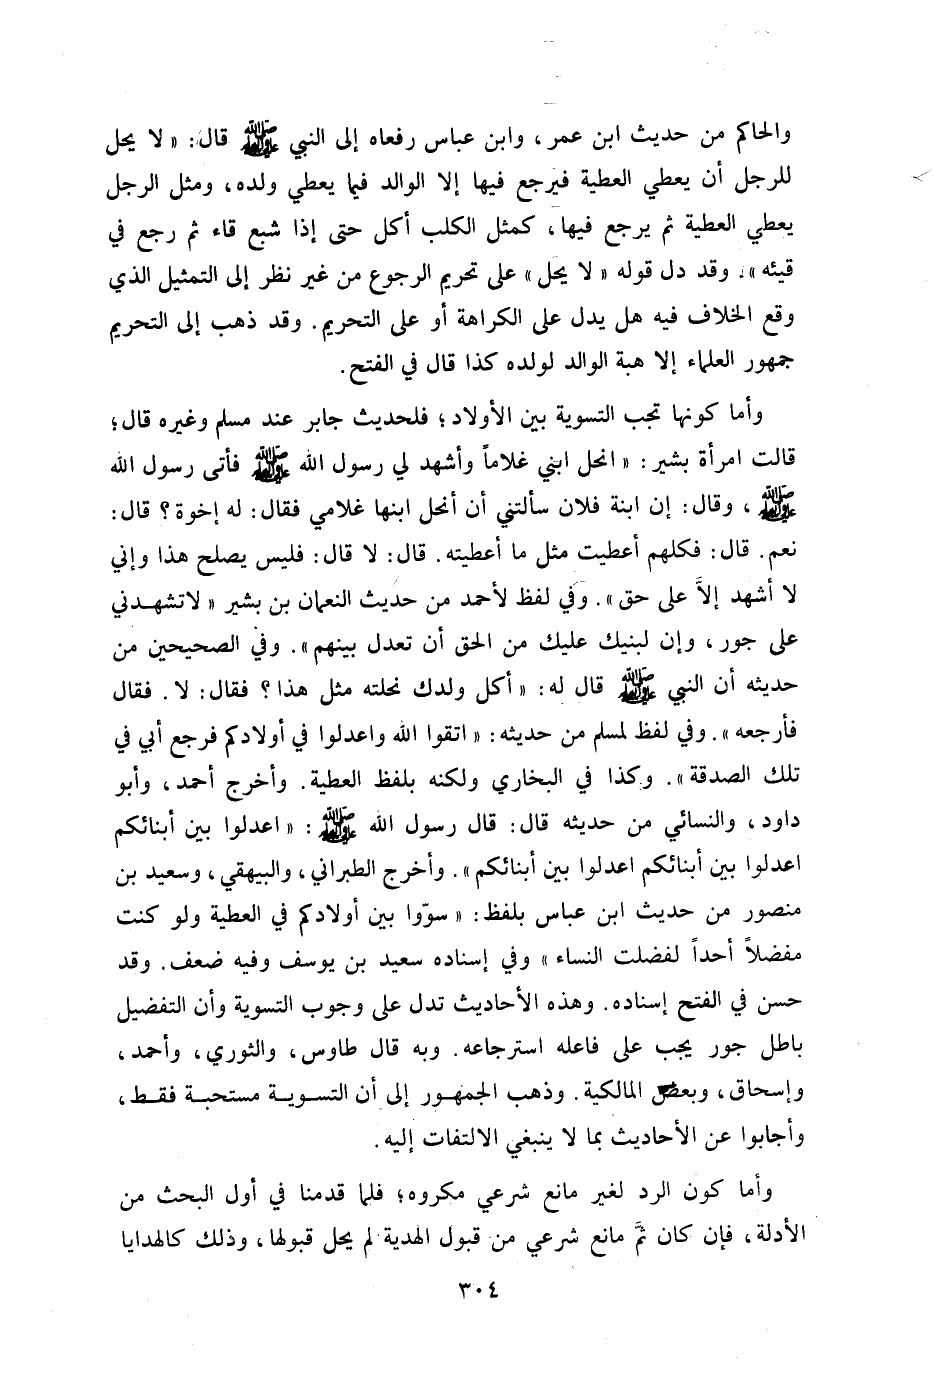 والحاكم من حديث ابن عمر، وابن عباس رفعاه إلى النبي ﷺ قال: « لا يحل
للرجل أن يعطي العطية فيرجع فيها إلا الوالد فيما يعطي ولده، ومثل الرجل
يعطي العطية ثم يرجع فيها، كمثل الكلب أكل حتى إذا شبع قاء ثم رجع في
قيئه ». وقد دل قوله « لا يحل » على تحريم الرجوع من غير نظر إلى التمثيل الذي
وقع الخلاف فيه هل يدل على الكراهة أو على التحريم. وقد ذهب إلى التحريم
جمهور العلماء إلا هبة الوالد لولده كذا قال في الفتح.
وأما كونها تجب التسوية بين الأولاد؛ فلحديث جابر عند مسلم وغيره قال؛
قالت امرأة بشير: « انحل ابني غلاماً وأشهد لي رسول الله ﷺ فأتى رسول الله
ﷺ، وقال: إن ابنة فلان سألتني أن أنحل ابنها غلامي فقال: له إخوة؟ قال:
نعم. قال: فكلهم أعطيت مثل ما أعطيته. قال: لا قال: فليس يصلح هذا وإني
لا أشهد إلاَّ على حق ». وفي لفظ لأحمد من حديث النعمان بن بشير « لاتشهدني
على جور، وإن لبنيك عليك من الحق أن تعدل بينهم ». وفي الصحيحين من
حديثه أن النبي ﷺ قال له: « أكل ولدك نحلته مثل هذا؟ فقال: لا. فقال
فأرجعه ». وفي لفظ لمسلم من حديثه: « اتقوا الله واعدلوا في أولادكم فرجع أبي في
تلك الصدقة ». وكذا في البخاري ولكنه بلفظ العطية. وأخرج أحمد، وأبو
داود، والنسائي من حديثه قال: قال رسول الله ﷺ: « اعدلوا بين أبنائكم
اعدلوا بين أبنائكم اعدلوا بين أبنائكم ». وأخرج الطبراني، والبيهقي، وسعيد بن
منصور من حديث ابن عباس بلفظ: « سوّوا بين أولادكم في العطية ولو كنت
مفضلاً أحداً لفضلت النساء » وفي إسناده سعيد بن يوسف وفيه ضعف. وقد
حسن في الفتح إسناده. وهذه الأحاديث تدل على وجوب التسوية وأن التفضيل
باطل جور يجب على فاعله استرجاعه. وبه قال طاوس، والثوري، وأحمد،
وإسحاق، وبعض المالكية. وذهب الجمهور إلى أن التسوية مستحبة فقط،
وأجابوا عن الأحاديث بما لا ينبغي الالتفات إليه.
وأما كون الرد لغير مانع شرعي مكروه؛ فلما قدمنا في أول البحث من
الأدلة، فإن كان ثمَّ مانع شرعي من قبول الهدية لم يحل قبولها، وذلك كالهدايا
٣٠٤